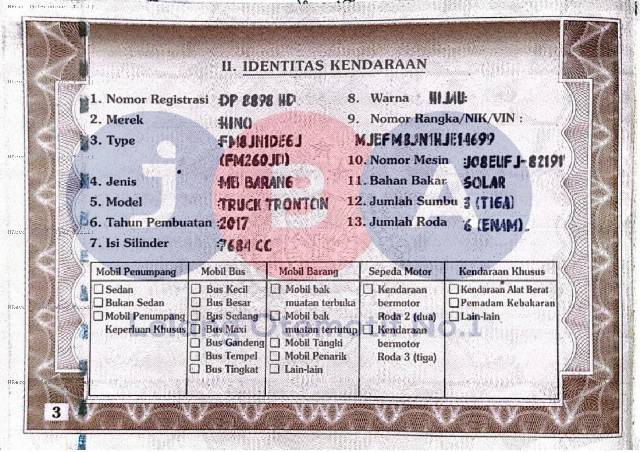 II. IDENTITAS KENDARAAN
1. Nomor Registrasi : DP 8898 HD
2. Merek : HINO
3. Type : FM8JN1DE6J
(FM260JD)
4. Jenis : MB BARANG
5. Model : TRUCK TRONTON
6. Tahun Pembuatan : 2017
7. Isi Silinder : 7684 CC
8. Warna : HIJAU
9. Nomor Rangka/NIK/VIN :
MJEFM8JN1HJE14699
10. Nomor Mesin : J08EUFJ-82191
11. Bahan Bakar SOLAR
12. Jumlah Sumbu 3 (TIGA)
13. Jumlah Roda 6 (ENAM)
Mobil Penumpang
Sedan
Bukan Sedan
Mobil Penumpang
Keperluan Khusus
Mobil Bus
Bus Kecil
Bus Besar
Bus Sedang
Bus Maxi
Bus Gandeng
Bus Tempel
Bus Tingkat
Mobil Barang
Mobil bak
muatan terbuka
Mobil bak
muatan tertutup
Mobil Tangki
Mobil Penarik
Lain-lain
Sepeda Motor
Kendaraan
bermotor
Roda 2 (dua)
Kendaraan
bermotor
Roda 3 (tiga)
Kendaraan Khusus
Kendaraan Alat Berat
Pemadam Kebakaran
Lain-lain
3
JBA
No.1